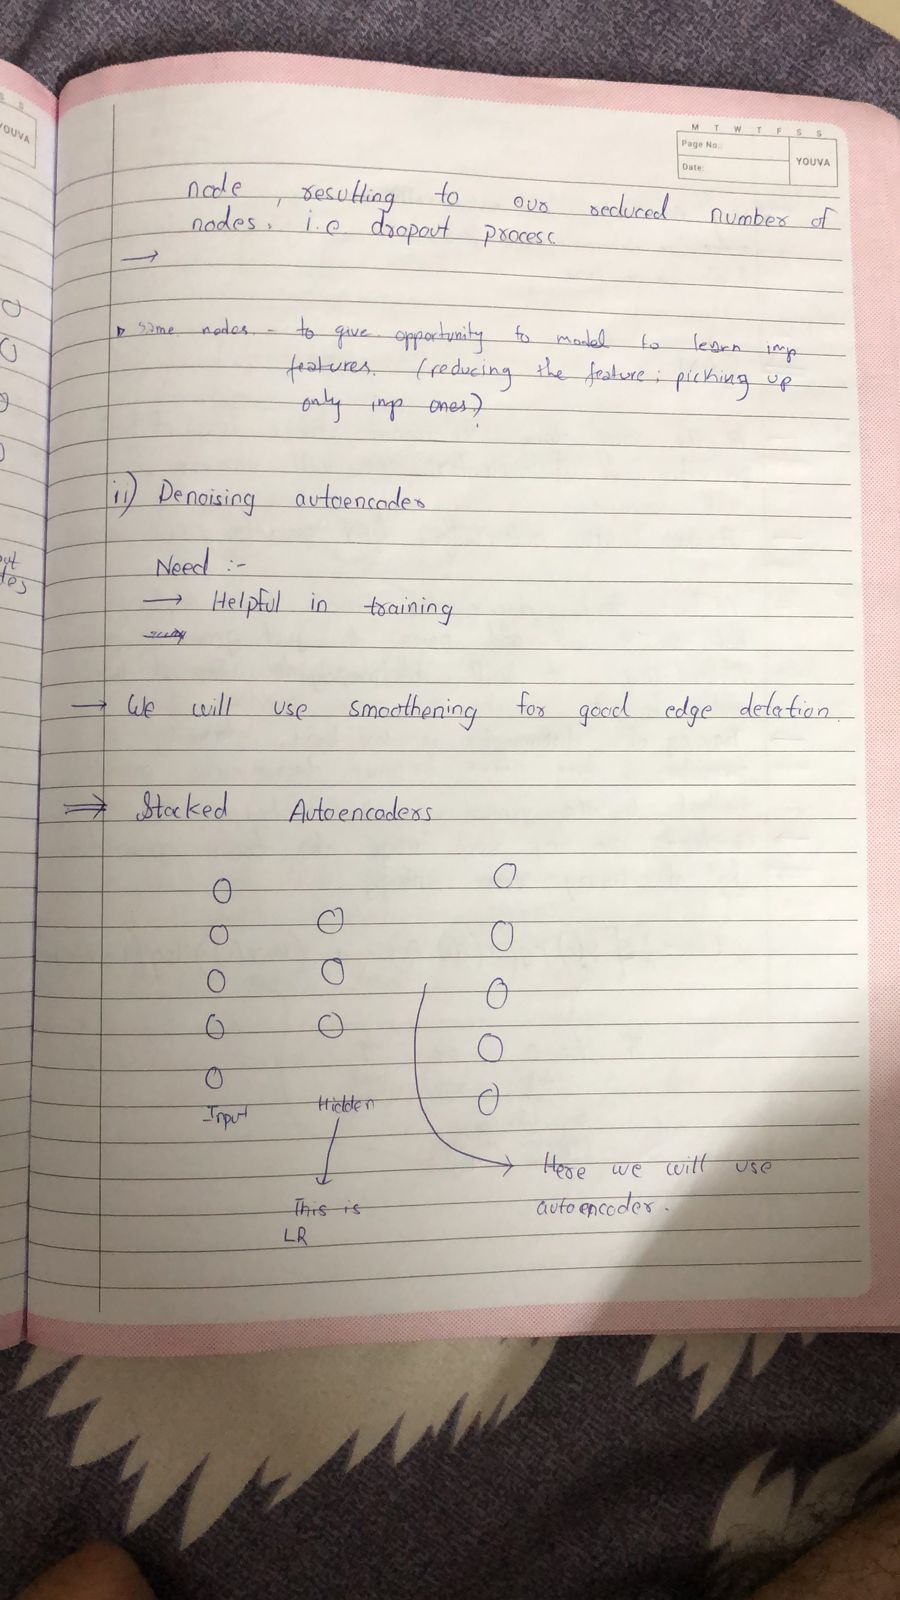 M T W T F S S
Page No.:
Date:
YOUVA
S S
YOUVA
node , resulting to our reduced number of
nodes. i.e dropout process
→
some nodes - to give opportunity to model to learn imp
features. (reducing the feature; picking up
only imp ones)
ii) Denoising autoencoder
Need :-
→ Helpful in training
→ We will use smoothening for good edge detetion.
⇒ Stacked Autoencoders
Input
Hidden
This is
LR
Here we will use
autoencoder.